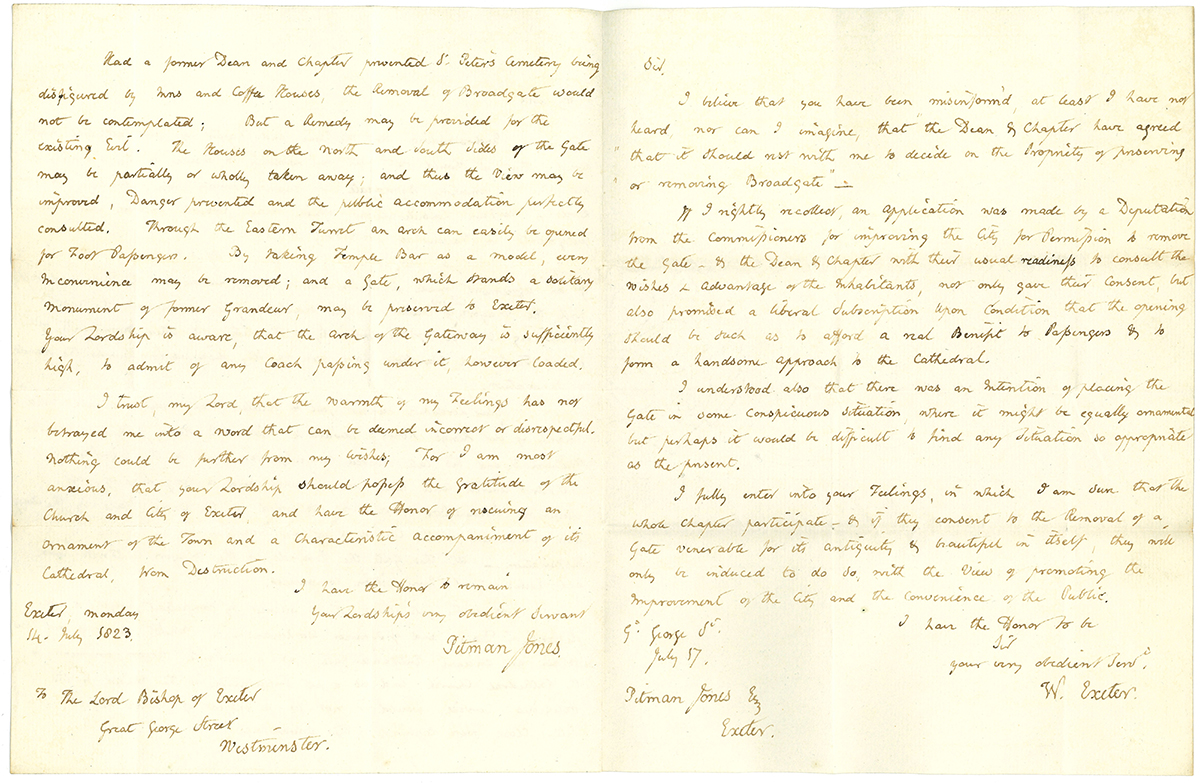 Had a former Dean and Chapter prevented St. Peter's Cemetery being
disfigured by Inns and Coffee Houses, the Removal of Broadgate would
not be contemplated; But a Remedy may be provided for the
existing Evil. The Houses on the North and South Sides of the Gate
may be partially or wholly taken away; and thus the View may be
improved, Danger prevented and the public accommodation perfectly
consulted. Through the Eastern Turret an arch can easily be opened
for Foot Passengers. By taking Temple Bar as a model, every
Inconvenience may be removed; and a Gate, which stands a solitary
Monument of former Grandeur, may be preserved to Exeter.
Your Lordship is aware, that the arch of the Gateway is sufficiently
high, to admit of any Coach passing under it, however loaded.
I trust, my Lord, that the warmth of my Feelings has not
betrayed me into a word that can be deemed incorrect or disrespectful.
Nothing could be further from my wishes; For I am most
anxious, that your Lordship should possess the Gratitude of the
Church and City of Exeter, and have the Honor of rescuing an
Ornament of the Town and a Characteristic accompaniment of its
Cathedral, from Destruction.
I have the Honor to remain
Your Lordship's very obedient Servant
Pitman Jones
Exeter, Monday
14. July 1823
To The Lord Bishop of Exeter
Great George Street
Westminster.
Sir,
I believe that you have been misinform'd, at least I have not
heard, nor can I imagine, that "the Dean & Chapter have agreed
" that it should rest with me to decide on the Propriety of preserving
" or removing Broadgate" —
If I rightly recollect, an application was made by a Deputation
from the Commissioners for improving the City for Permission to remove
the Gate - & the Dean & Chapter with their usual readiness to consult the
wishes & Advantage of the Inhabitants, not only gave their Consent, but
also promised a liberal Subscription upon Condition that the opening
should be such as to afford a real Benefit to Passengers & to
form a handsome approach to the Cathedral.
I understood also that there was an Intention of placing the
Gate in some conspicuous situation, where it might be equally ornamental
but perhaps it would be difficult to find any Situation so appropriate
as the present.
I fully enter into your Feelings, in which I am sure that the
whole Chapter participate - & if they consent to the Removal of a
Gate venerable for its antiquity & beautiful in itself, they will
only be induced to do so, with the View of promoting the
Improvement of the City and the Convenience of the Public.
I have the Honor to be
Sir
your very obedient Servt.
W. Exeter.
Gt. George St.
July 17.
Pitman Jones Esq
Exeter.